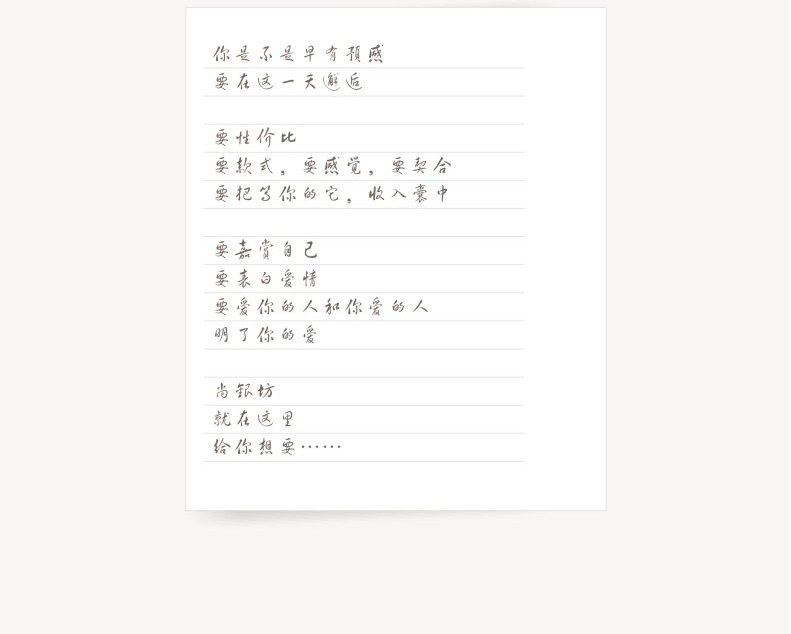 你是不是早有预感
要在这一天邂逅
要性价比
要款式，要感觉，要契合
要把等你的它，收入囊中
要嘉赏自己
要表白爱情
要爱你的人和你爱的人
明了你的爱
尚银坊
就在这里
给你想要……